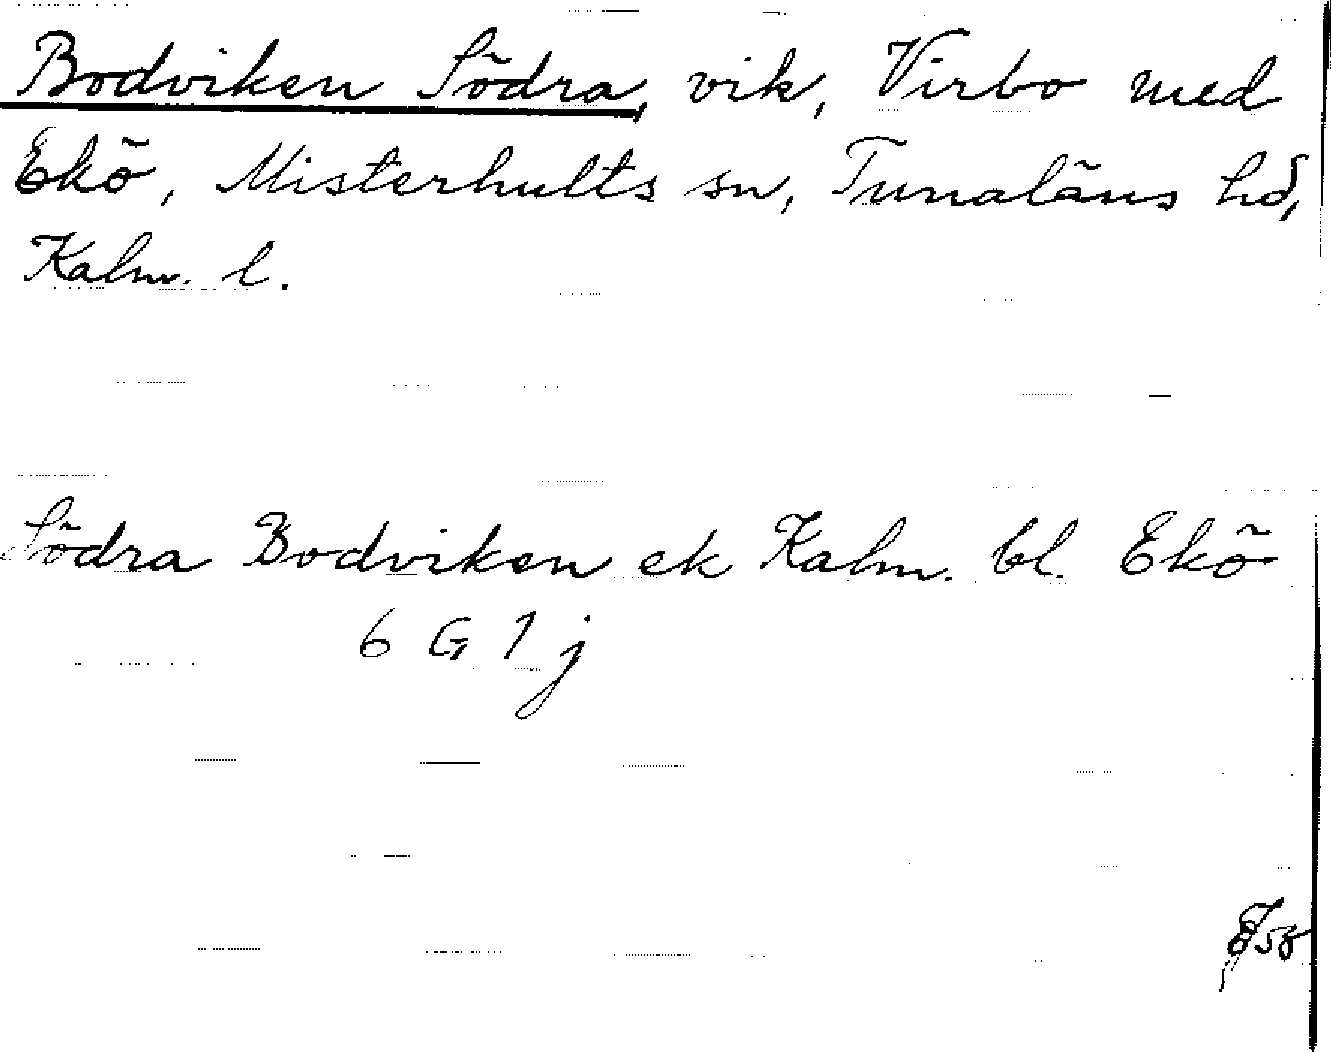 Bodviken Södra, vik, Virbo med
Ekö, Misterhults sn, Tunaläns hd,
Kalm. l.
Södra Bodviken ek Kalm. bl. Ekö
6 G 1 j